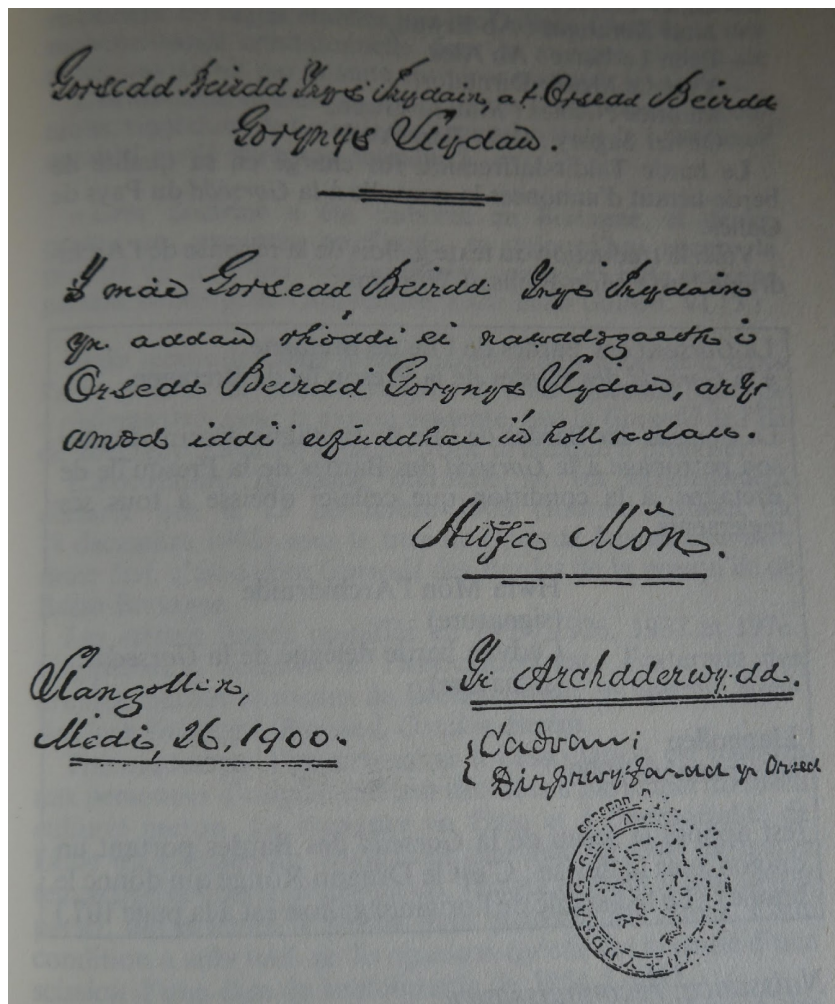 Gorsedd Beirdd Ynys Prydain, at Orsedd Beirdd
Gorynys Llydaw.
Y mae Gorsedd Beirdd Ynys Prydain
yn addaw rhoddi ei nawddogaeth i
Orsedd Beirdd Gorynys Llydaw, ar yr
amod iddi ufuddhau i'w holl reolau.
Hwfa Môn.
Yr Archdderwydd.
Llangollen,
Medi, 26, 1900.
Cadvan;
Dirprwyfardd yr Orsedd
Y DDRAIG GOCH